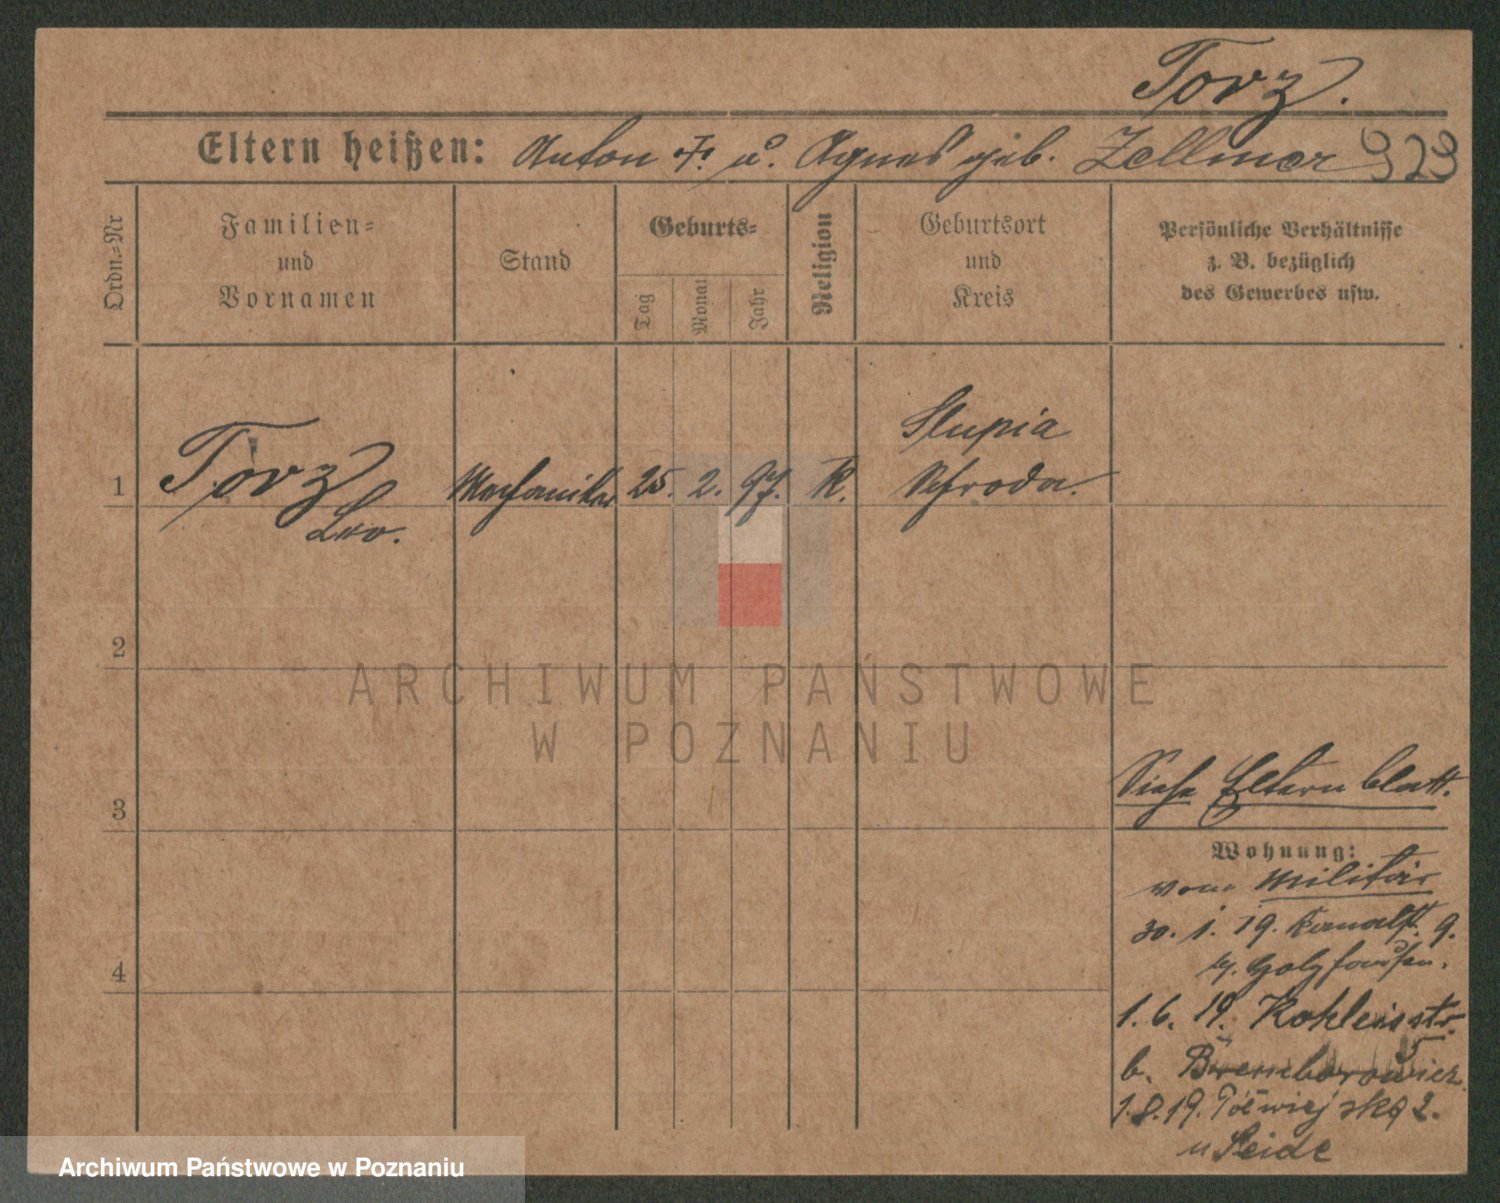 Torz.
Eltern heißen: Anton †. u. Agnes geb. Zellmer 923
Ordn.-Nr
Familien-
und
Vornamen
Stand
Geburts-
Tag
Monat
Jahr
Religion
Geburtsort
und
Kreis
Persönliche Verhältnisse
z. B. bezüglich
des Gewerbes usw.
1
Torz
Leo.
Mechaniker
25. 2. 97. K.
Slupia
Schroda.
2
3
4
Siehe Elternblatt.
Wohnung:
vom Militär
30. 1. 19. Kanalst. 9.
1. 6. 19. Kohleisstr.
5
b.
1. 8. 19. Półwiejska 2.
u Seide
ARCHIWUM PAŃSTWOWE
W POZNANIU
Archiwum Państwowe w Poznaniu